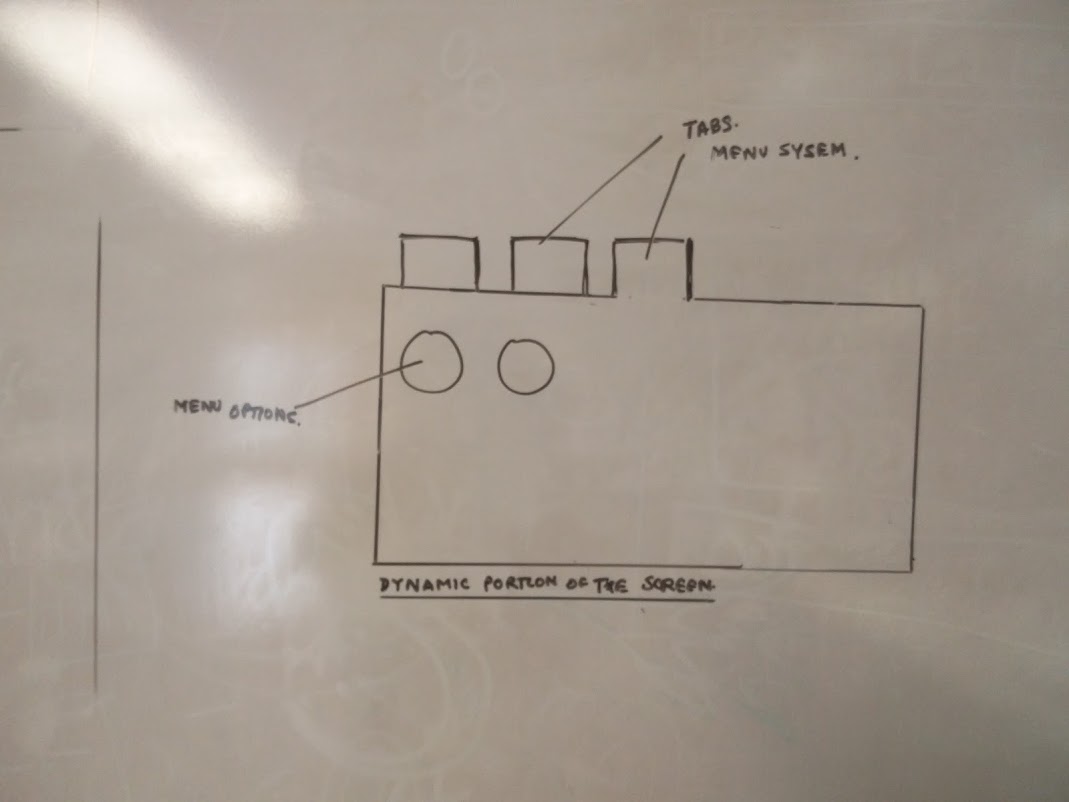 TABS.
MENU SYSEM.
MENU OPTIONS.
DYNAMIC PORTION OF THE SCREEN.